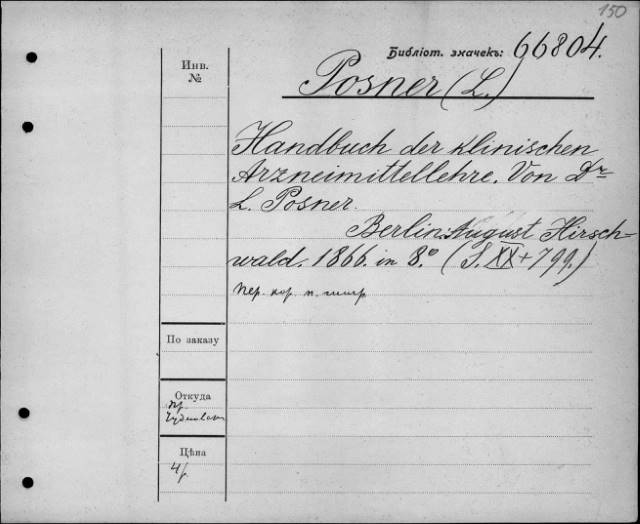 150
Библіот. значекъ: 66804.
Инв.
№
Posner (L.)
Handbuch der klinischen
Arzneimittellehre. Von Dr
L. Posner.
Berlin. August Hirsch-
wald. 1866. in 8.º (S. XX + 799.)
пер. кор. п.
По заказу
Откуда
Цѣна
4р.